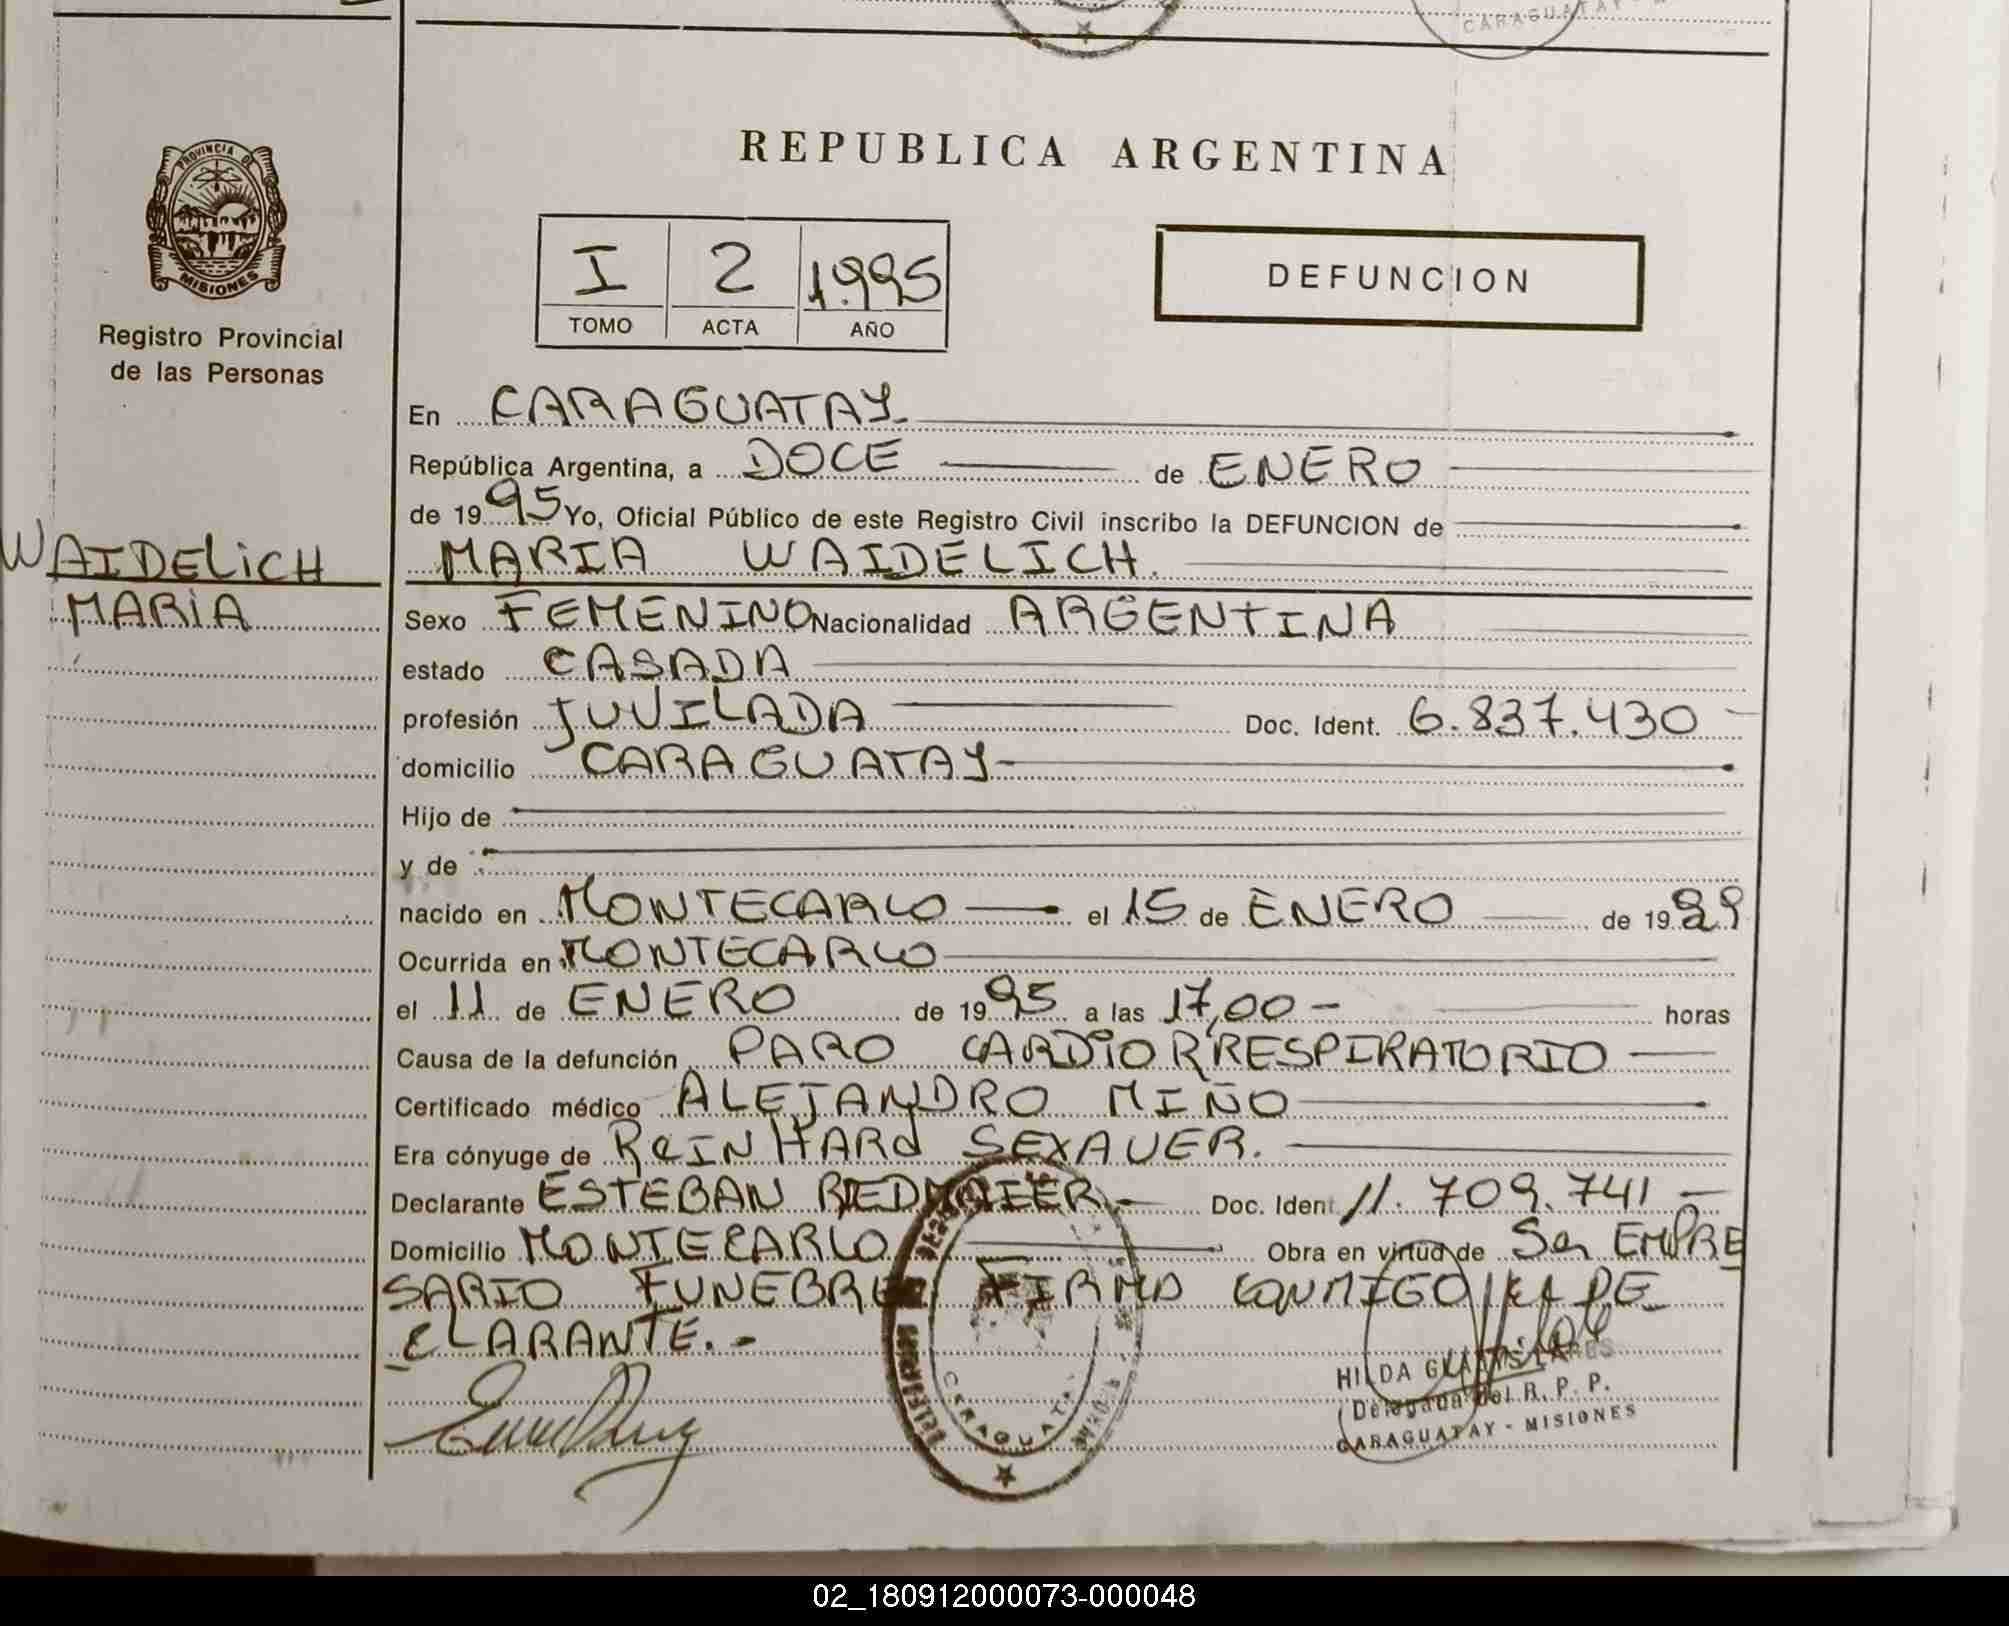 CARAGUATAY
REPUBLICA ARGENTINA
PROVINCIA DE
MISIONES
I 2 1.995
TOMO ACTA AÑO
DEFUNCION
Registro Provincial
de las Personas
En CARAGUATAY
República Argentina, a DOCE de ENERO
de 1995 Yo, Oficial Público de este Registro Civil inscribo la DEFUNCION de
WAIDELiCH
MARiA
MARIA WAIDELICH.
Sexo FEMENINO Nacionalidad ARGENTINA
estado CASADA
profesión JUVILADA Doc. Ident. 6.837.430 -
domicilio CARAGUATAY
Hijo de
y de
nacido en MONTECARLO el 15 de ENERO de 19
Ocurrida en MONTECARLO
el 11 de ENERO de 1995 a las 17,00 - horas
Causa de la defunción PARO CARDIORRESPIRATORIO
Certificado médico ALEJANDRO MIÑO
Era cónyuge de ReINHARd SEXAUER.
Declarante ESTEBAN Doc. Ident. 11.709.741 -
Domicilio MONTECARLO Obra en virtud de Ser EMPRE
SARIO FUNEBRE FIRMA CONMIGO EL DE
CLARANTE.-
CARAGUATAY
HILDA
Delegada del R. P. P.
CARAGUATAY - MISIONES
02_180912000073-000048